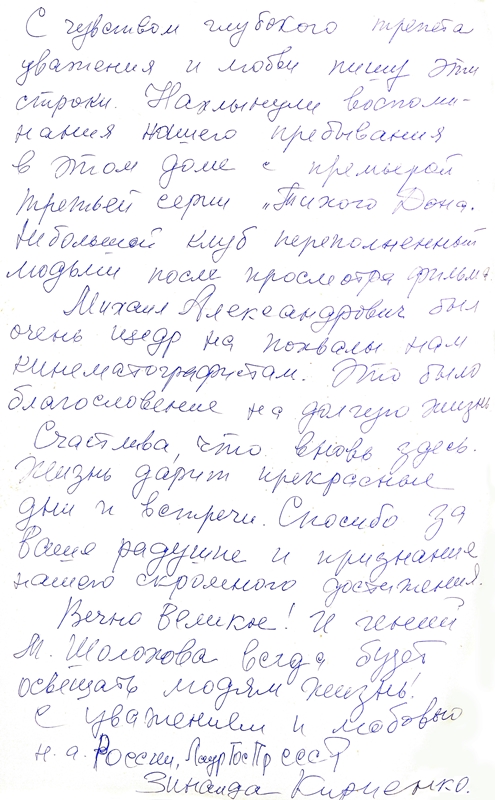 С чувством глубокого трепета
уважения и любви пишу эти
строки. Нахлынули воспоми-
нания нашего пребывания
в этом доме с премьерой
третьей серии „Тихого Дона.
Небольшой клуб переполненный
людьми после просмотра фильма.
Михаил Александрович был
очень щедр на похвалы нам
кинематографистам. Это было
благословение на долгую жизнь
Счастлива, что вновь здесь.
Жизнь дарит прекрасные
дни и встречи. Спасибо за
ваше радушие и признание
нашего скромного достижения.
Вечно Великое! И гений
М. Шолохова всегда будет
освещать людям жизнь!
С уважением и любовью
н.а. России, Лаур Гос Пр СССР
Зинаида Кириенко.